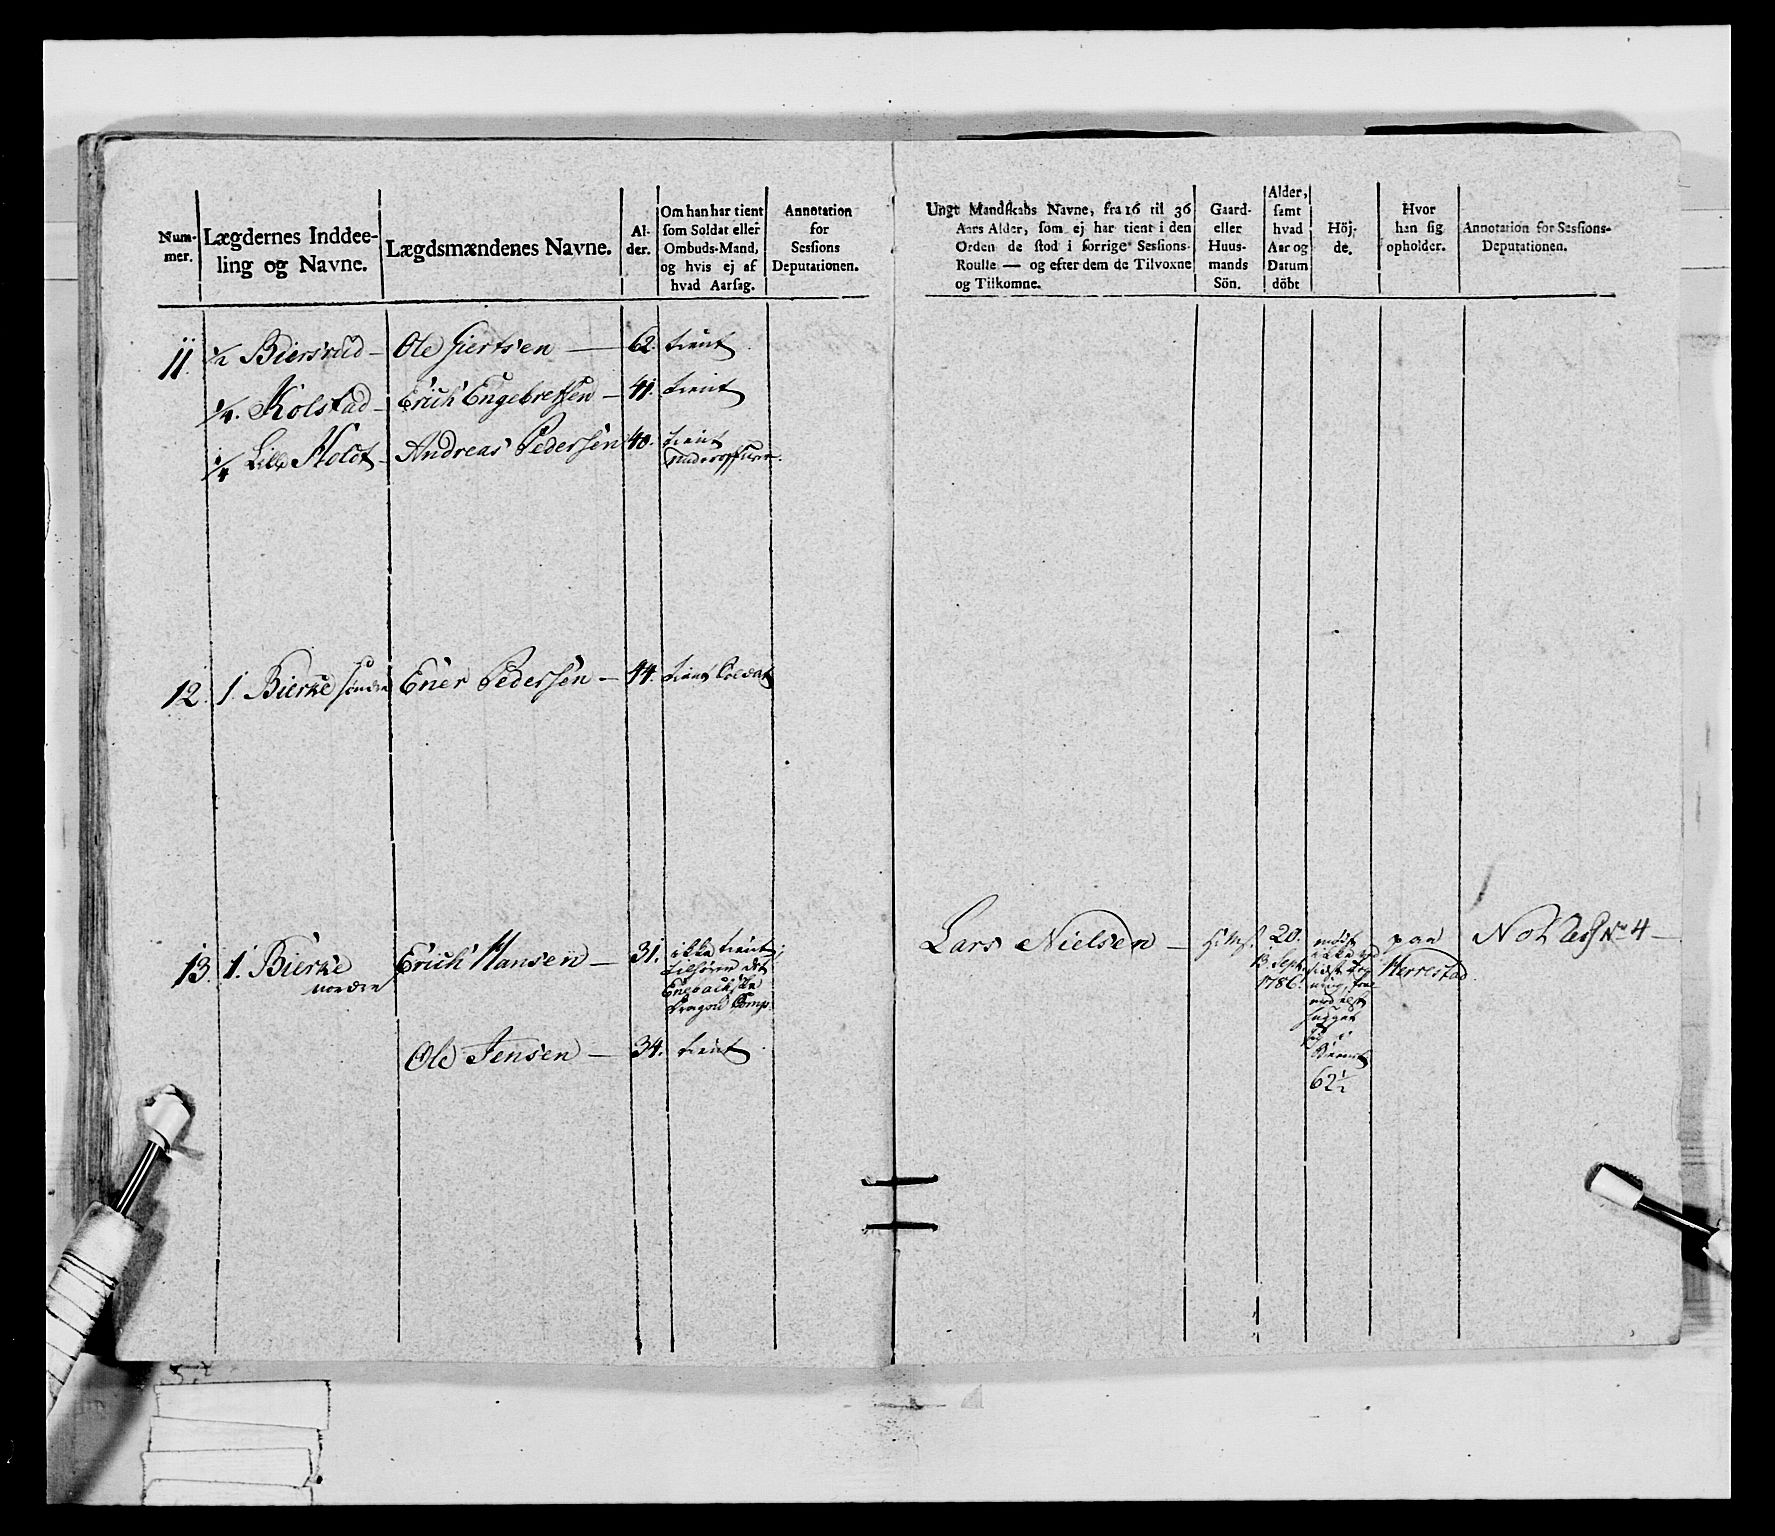 Num-
mer.
Lægdernes Inddee-
ling og Navne.
Lægdsmændenes Navne.
Al-
der.
Om han har tient
som Soldat eller
Ombuds-Mand,
og hvis ej af
hvad Aarsag.
Annotation
for
Sessions
Deputationen.
Ungt Mandskabs Navne, fra 16 til 36
Aars Alder, som ej har tient i den
Orden de stod i forrige Sessions-
Roulle — og efter dem de Tilvoxne
og Tilkomne.
Gaard-
eller
Huus-
mands
Sön.
Alder,
samt
hvad
Aar og
Datum
döbt
Höj-
de.
Hvor
han sig
opholder.
Annotation for Sessions-
Deputationen.
11. 1/2 Biersrud — Ole Giertsen — 62. tient
1/4. Kolstad — Erich Engebretsen — 41. tient
1/4 Lille Holdt — Andreas Pedersen 40. tient
underofficer.
12. 1. Bierke søndre Ener Pedersen — 44. tient Soldat
13. 1. Bierke Erich Hansen — 31. ikke tient;
nordre
tilhører det
Enebachske
Dragon Comp.
Lars Nielsen — 20. paa
13 Sept.
1786.
Herrestad
No 4 —
62 1/2
Ole Jensen — 34. tient